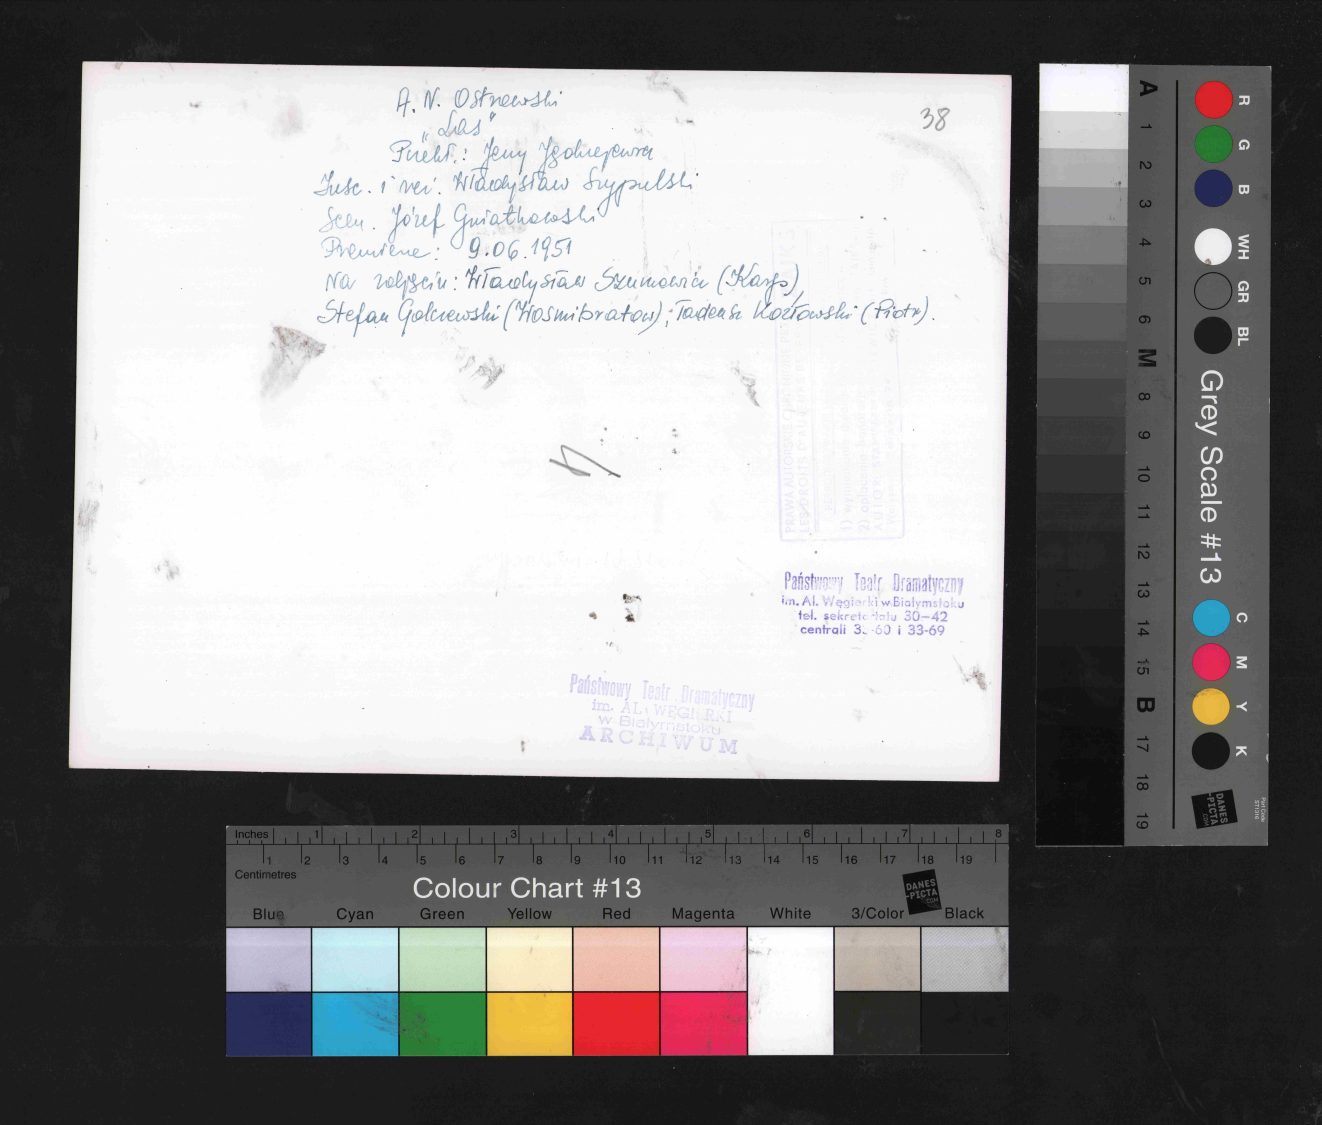 A. N. Ostrowski
„Las"
Przekł.: Jerzy Jędrzejewicz
Insc. i reż. Władysław Szypulski
Scen. Józef Gniatkowski
Premiera: 9.06.1951
Na zdjęciu: Władysław Szumowicz (Karp),
Stefan Golczewski (Wosmibratow); Tadeusz Kozłowski (Piotr).
38
Państwowy Teatr Dramatyczny
im. Al. Węgierki w Białymstoku
tel. sekretariatu 30-42
centrali 33-60 i 33-69
Państwowy Teatr Dramatyczny
im. AL. WĘGIERKI
w Białymstoku
ARCHIWUM
A 1 2 3 4 5 6 M 8 9 10 11 12 13 14 15 B 17 18 19
R G B WH GR BL
Grey Scale #13
C M Y K
DANES
-PICTA
.COM
Part Code
ST1316
Inches 1 2 3 4 5 6 7 8
1 2 3 4 5 6 7 8 9 10 11 12 13 14 15 16 17 18 19
Centimetres
Colour Chart #13
DANES
-PICTA
.COM
Blue Cyan Green Yellow Red Magenta White 3/Color Black